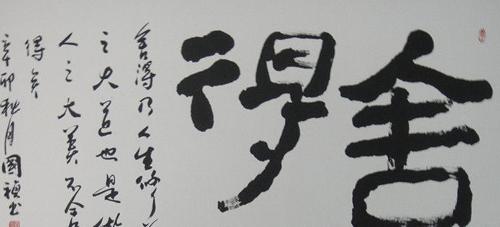 舍得
舍得乃人生修行
之大道也是做
人之大美不舍
得矣
辛卯秋月國禎书